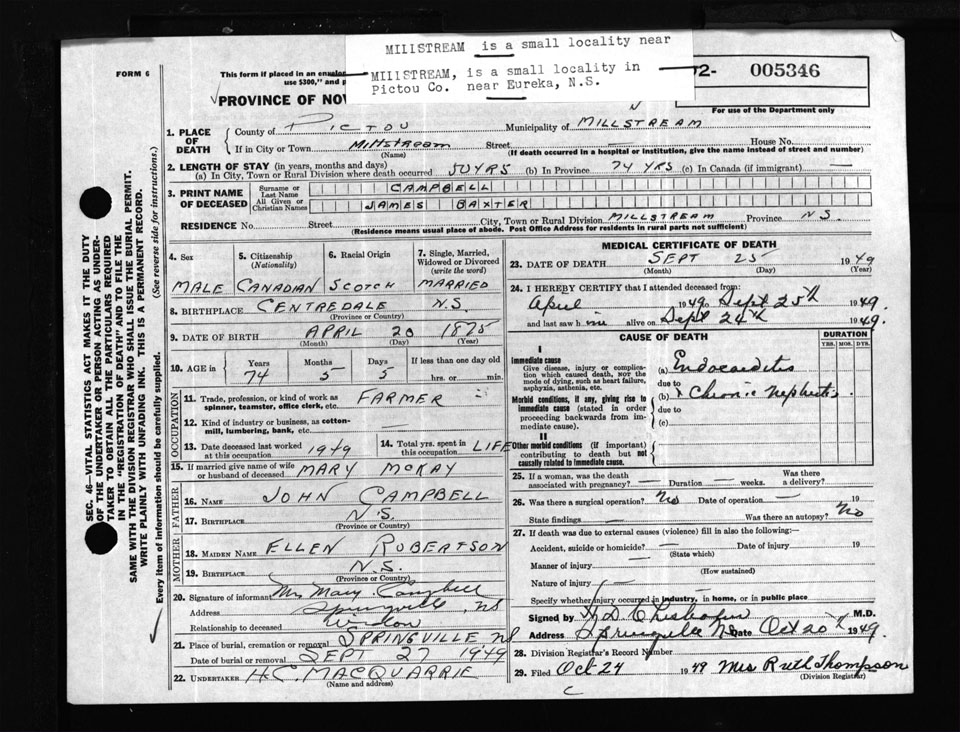 MIllSTREAM is a small locality near
MIllSTREAM, is a small locality in
Pictou Co. near Eureka, N.S.
FORM 6
This form if placed in an
use $300," and
2- 005346
PROVINCE OF NO
For use of the Department only
1. PLACE OF DEATH
County of PICTOU Municipality of MILLSTREAM
If in City or Town Millstream Street — House No.
(Name) (If death occurred in a hospital or institution, give the name instead of street and number)
2. LENGTH OF STAY (in years, months and days)
(a) In City, Town or Rural Division where death occurred 50 YRS (b) In Province 74 YRS (c) In Canada (if immigrant) —
3. PRINT NAME OF DECEASED
Surname or Last Name CAMPBELL
All Given or Christian Names JAMES BAXTER
RESIDENCE No. Street City, Town or Rural Division MILLSTREAM Province NS
(Residence means usual place of abode. Post Office Address for residents in rural parts not sufficient)
4. Sex 5. Citizenship (Nationality) 6. Racial Origin 7. Single, Married, Widowed or Divorced (write the word)
MALE CANADIAN SCOTCH MARRIED
8. BIRTHPLACE CENTREDALE N.S.
(Province or Country)
9. DATE OF BIRTH APRIL 20 1875
(Month) (Day) (Year)
10. AGE in Years Months Days If less than one day old
74 5 5 hrs. or min.
OCCUPATION
11. Trade, profession, or kind of work as spinner, teamster, office clerk, etc. FARMER
12. Kind of industry or business, as cotton-mill, lumbering, bank, etc. —
13. Date deceased last worked at this occupation 1949 14. Total yrs. spent in this occupation LIFE
15. If married give name of wife or husband of deceased MARY McKAY
FATHER
16. Name JOHN CAMPBELL
17. Birthplace N.S.
(Province or Country)
MOTHER
18. Maiden Name ELLEN ROBERTSON
19. Birthplace N.S.
(Province or Country)
20. Signature of informant Mrs Mary Campbell
Address Springville, NS
Relationship to deceased Widow
21. Place of burial, cremation or removal SPRINGVILLE NS
Date of burial or removal SEPT 27 1949
22. UNDERTAKER H.C. MACQUARRIE
(Name and address)
MEDICAL CERTIFICATE OF DEATH
23. DATE OF DEATH SEPT 25 1949
(Month) (Day) (Year)
24. I HEREBY CERTIFY that I attended deceased from:
April 1949 to Sept 25th 1949
and last saw him alive on Sept 24th 1949.
CAUSE OF DEATH DURATION
YRS. MOS. DYS.
I
Immediate cause
Give disease, injury or complication which caused death, NOT the mode of dying, such as heart failure, asphyxia, asthenia, etc.
(a) Endocarditis
due to
Morbid conditions, if any, giving rise to immediate cause (stated in order proceeding backwards from immediate cause).
(b) Chronic Nephritis
due to
(c)
II
Other morbid conditions (If important) contributing to death but not causally related to immediate cause.
25. If a woman, was the death associated with pregnancy? — Duration — weeks. Was there a delivery?
26. Was there a surgical operation? No Date of operation — 19
State findings — Was there an autopsy? No
27. If death was due to external causes (violence) fill in also the following:
Accident, suicide or homicide? Date of injury 19
(State which)
Manner of injury —
(How sustained)
Nature of injury —
Specify whether injury occurred in industry, in home, or in public place
Signed by M.D.
Address Springville NS Date Oct 20th 1949.
28. Division Registrar's Record Number
29. Filed Oct 24 1949 Mrs Ruth Thompson
(Division Registrar)
SEC. 46—VITAL STATISTICS ACT MAKES IT THE DUTY
OF THE UNDERTAKER OR PERSON ACTING AS UNDER-
TAKER TO OBTAIN ALL THE PARTICULARS REQUIRED
IN THE "REGISTRATION OF DEATH" AND TO FILE THE
SAME WITH THE DIVISION REGISTRAR WHO SHALL ISSUE THE BURIAL PERMIT.
WRITE PLAINLY WITH UNFADING INK. THIS IS A PERMANENT RECORD.
Every item of information should be carefully supplied. (See reverse side for instructions.)